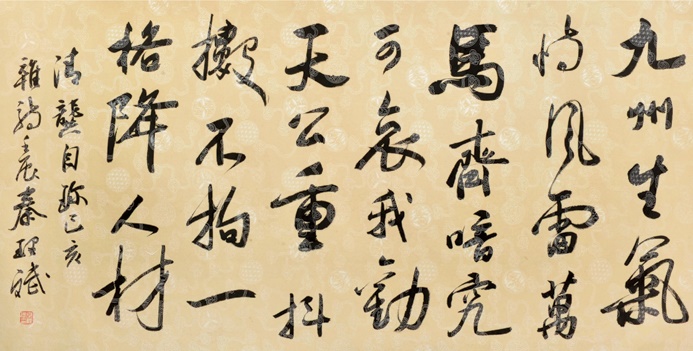 九州生氣
恃風雷萬
馬齊喑究
可哀我勸
天公重抖
擻不拘一
格降人材
清龔自珍己亥
雜詩 壬辰秦理斌